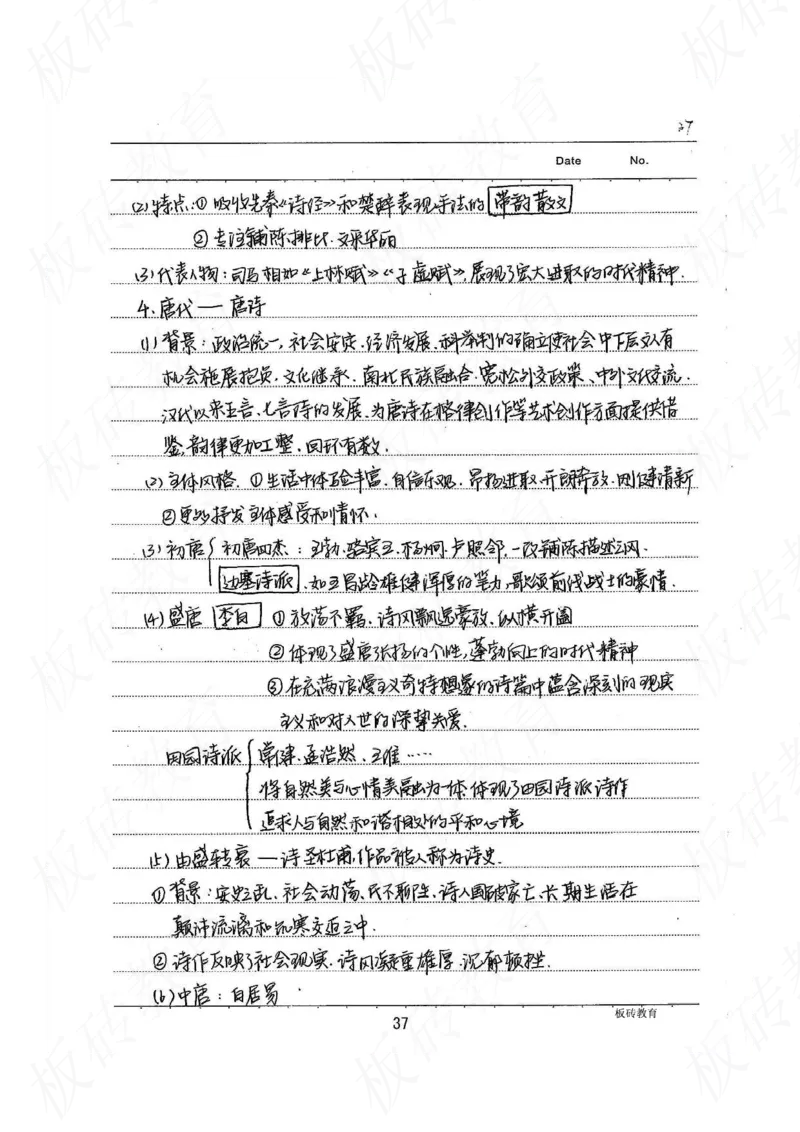 27
Date No.
(2)特点:①吸收先秦《诗经》和楚辞表现手法的 带韵散文
②专注铺陈排比.文采华丽
(3)代表人物:司马相如《上林赋》《子虚赋》,展现了宏大进取的时代精神.
4.唐代——唐诗
(1)背景:政治统一,社会安定.经济发展.科举制的确立使社会中下层文人有
机会施展抱负,文化继承.南北民族融合.宽松外交政策、中外文化交流.
汉代以来五言、七言诗的发展.为唐诗在格律创作等艺术创作方面提供借
鉴,韵律更加工整.回环有数.
(2)主体风格.①生活中体验丰富.自信乐观.昂扬进取.开朗奔放.刚健清新
②更多抒发主体感受和情怀.
(3)初唐 初唐四杰:王勃.骆宾王.杨炯.卢照邻,一改铺陈描述之风.
边塞诗派.如王昌龄雄健浑厚的笔力,歌颂前线战士的豪情.
(4)盛唐 李白 ①放荡不羁.诗风飘逸豪放.纵横开阖
②体现了盛唐张扬的个性,蓬勃向上的时代精神
③在充满浪漫主义奇特想象的诗篇中蕴含深刻的现实
主义和对人世的深挚关爱.
田园诗派 常健.孟浩然.王维……
将自然美与心情美融为一体.体现了田园诗派诗作
追求人与自然和谐相处的平和心境
(5)由盛转衰——诗圣杜甫,作品被人称为诗史.
①背景:安史之乱.社会动荡、民不聊生,诗人国破家亡.长期生活在
颠沛流漓和饥寒交迫之中.
②诗作反映了社会现实.诗风凝重雄厚.沉郁顿挫.
(6)中唐:白居易
37
板砖教育